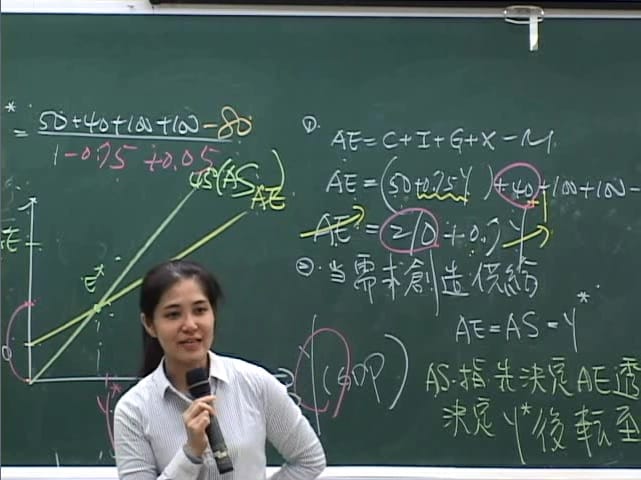 * = 50+40+100+100-80
1-0.75+0.05
45°(AS)
AE
E*
Y*
Y(GDP)
①. AE=C+I+G+X-M
AE=(50+0.75Y)+40+100+100-
AE=210+0.7Y
②. 當需求創造供給
AE=AS=Y*
AS.指先決定AE透
決定Y*後転至